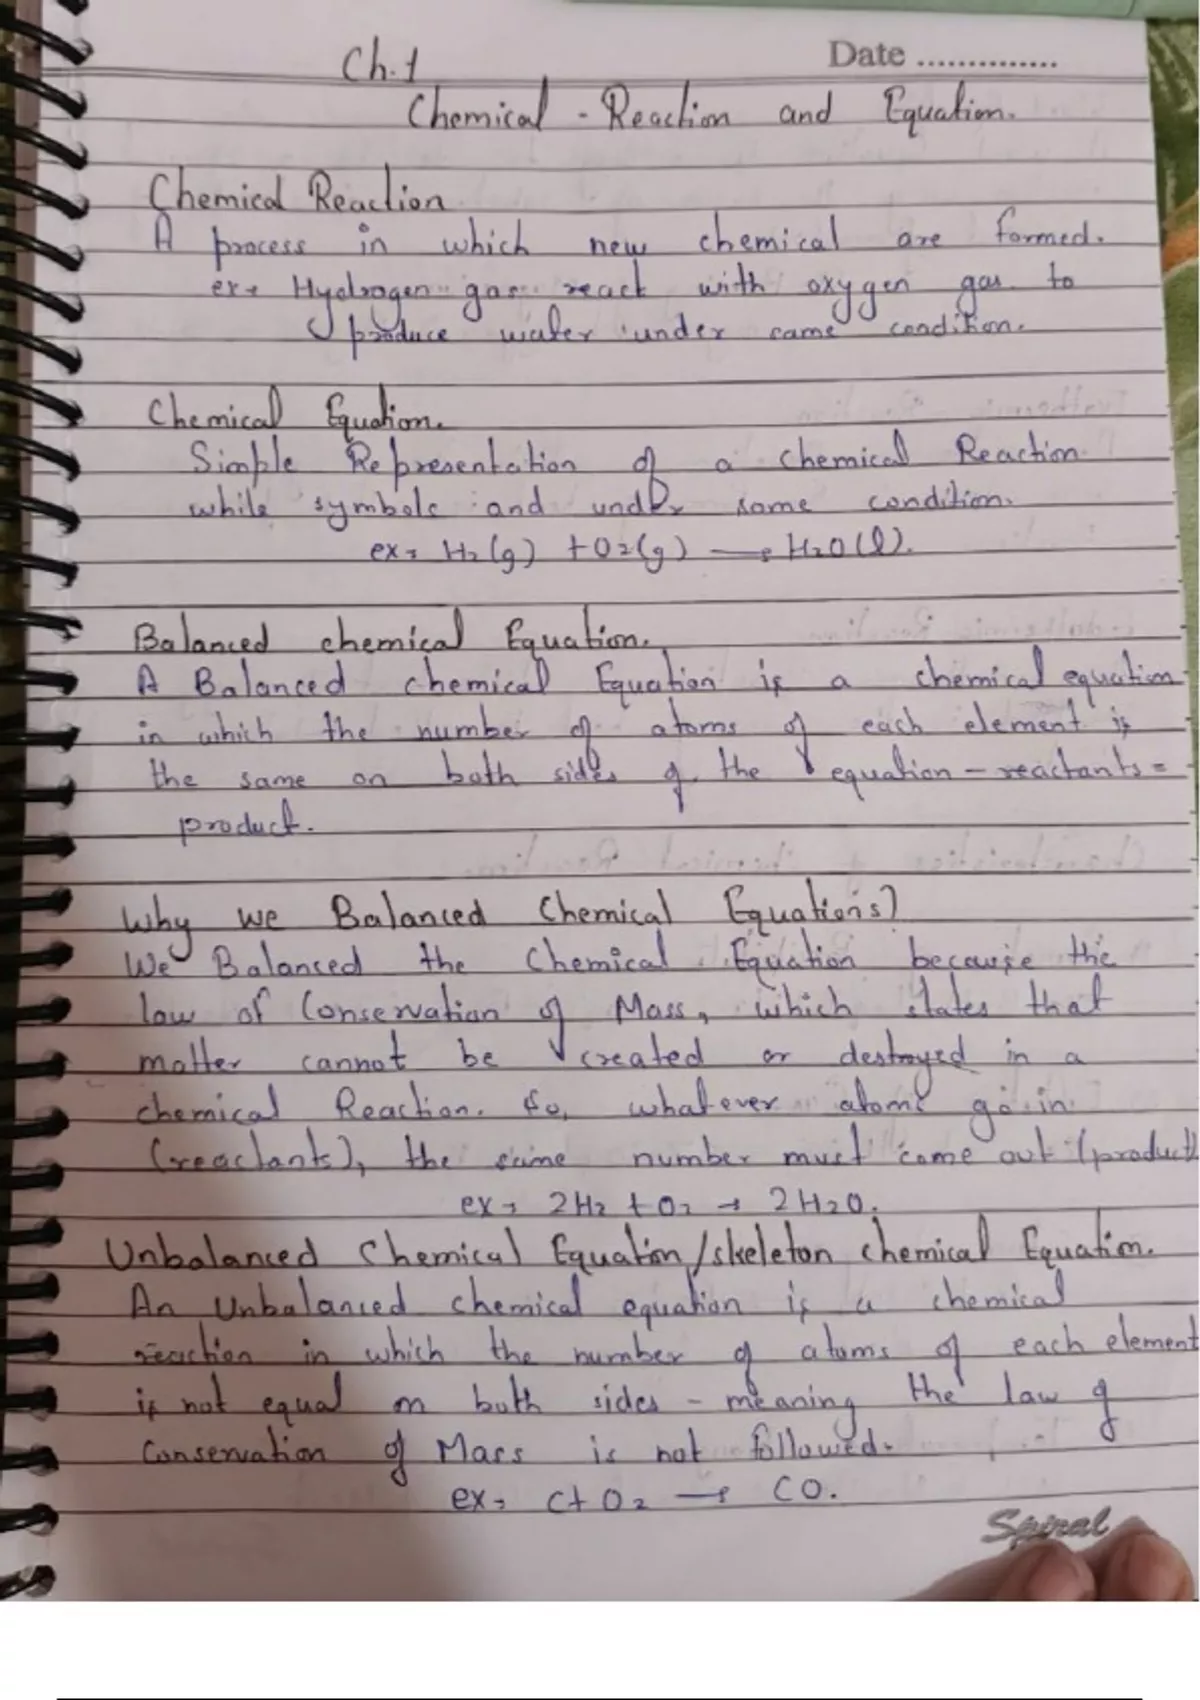 Date ..............
Ch.1
Chemical - Reaction and Equation.
Chemical Reaction
A process in which new chemical are formed.
ex→ Hydrogen gas react with oxygen gas to
produce water under same condition.
Chemical Equation.
Simple Representation of a chemical Reaction
while symbols and under same condition.
ex→ H2(g) + O2(g) → H2O(l).
Balanced chemical Equation.
A Balanced chemical Equation is a chemical equation
in which the number of atoms of each element is
the same on both sides of the equation - reactants =
product.
Why we Balanced Chemical Equations?
We Balanced the Chemical Equation because the
law of Conservation of Mass, which states that
matter cannot be created or destroyed in a
chemical Reaction. So, whatever atoms go in
(reactants), the same number must come out (product)
ex→ 2H2 + O2 → 2H2O.
Unbalanced Chemical Equation/skeleton chemical Equation.
An Unbalanced chemical equation is a chemical
reaction in which the number of atoms of each element
is not equal on both sides - meaning the law of
Conservation of Mass is not followed.
ex→ C+ O2 → CO.
Spiral